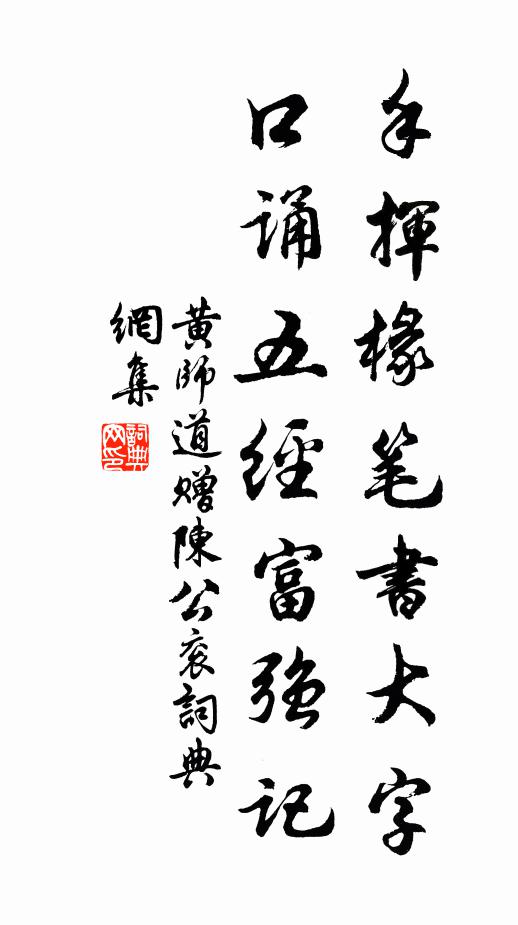 手揮椽笔書大字
口诵五經富強記
黄師道赠陳公衮詞典
網集
詞典网印